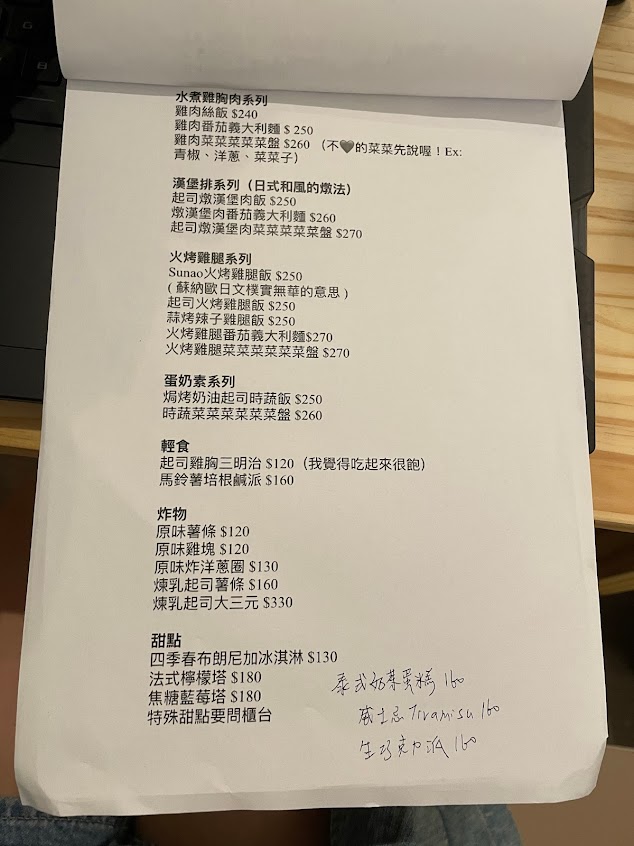 水煮雞胸肉系列
雞肉絲飯 $240
雞肉番茄義大利麵 $ 250
雞肉菜菜菜菜菜菜盤 $260 （不🖤的菜菜先說喔！Ex:
青椒、洋蔥、菜菜子）
漢堡排系列（日式和風的燉法）
起司燉漢堡肉飯 $250
燉漢堡肉番茄義大利麵 $260
起司燉漢堡肉菜菜菜菜菜盤 $270
火烤雞腿系列
Sunao火烤雞腿飯 $250
( 蘇納歐日文樸實無華的意思 )
起司火烤雞腿飯 $250
蒜烤辣子雞腿飯 $250
火烤雞腿番茄義大利麵$270
火烤雞腿菜菜菜菜菜菜盤 $270
蛋奶素系列
焗烤奶油起司時蔬飯 $250
時蔬菜菜菜菜菜菜盤 $260
輕食
起司雞胸三明治 $120（我覺得吃起來很飽）
馬鈴薯培根鹹派 $160
炸物
原味薯條 $120
原味雞塊 $120
原味炸洋蔥圈 $130
煉乳起司薯條 $160
煉乳起司大三元 $330
甜點
四季春布朗尼加冰淇淋 $130
法式檸檬塔 $180
焦糖藍莓塔 $180
特殊甜點要問櫃台
泰式奶茶蛋糕 160
威士忌Tiramisu 160
生巧克力派 160